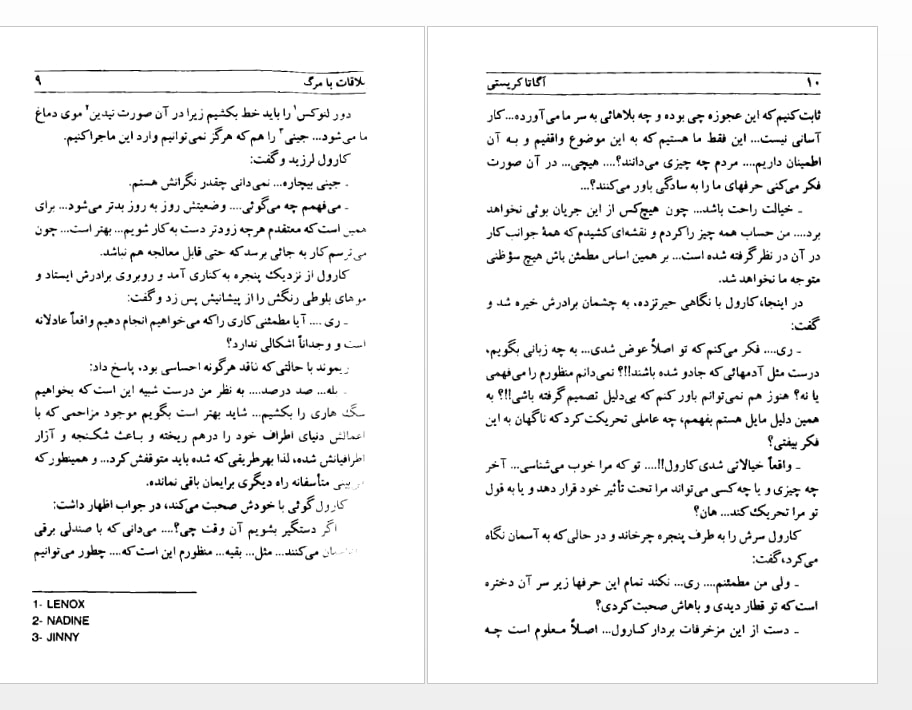 ملاقات با مرگ ۹
دور لنوکس۱ را باید خط بکشیم زیرا در آن صورت نیدین۲ موی دماغ
ما می‌شود... جینی۳ را هم که هرگز نمی‌توانیم وارد این ماجرا کنیم.
کارول لرزید و گفت:
ـ جینی بیچاره... نمی‌دانی چقدر نگرانش هستم.
ـ می‌فهمم چه می‌گوئی.... وضعیتش روز به روز بدتر می‌شود... برای
همین است که معتقدم هرچه زودتر دست به کار شویم... بهتر است... چون
می‌ترسم کار به جائی برسد که حتی قابل معالجه هم نباشد.
کارول از نزدیک پنجره به کناری آمد و روبروی برادرش ایستاد و
موهای بلوطی رنگش را از پیشانیش پس زد و گفت:
ـ ری .... آیا مطمئنی کاری را که می‌خواهیم انجام دهیم واقعاً عادلانه
است و وجداناً اشکالی ندارد؟
ریموند با حالتی که فاقد هرگونه احساسی بود، پاسخ داد:
ـ بله... صد درصد.... به نظر من درست شبیه این است که بخواهیم
سگ هاری را بکشیم... شاید بهتر است بگویم موجود مزاحمی که با
اعمالش دنیای اطراف خود را درهم ریخته و باعث شکنجه و آزار
اطرافیانش شده، لذا بهرطریقی که شده باید متوقفش کرد... و همینطور که
می‌بینی متأسفانه راه دیگری برایمان باقی نمانده.
کارول گوئی با خودش صحبت می‌کند، در جواب اظهار داشت:
اگر دستگیر بشویم آن وقت چی؟.... می‌دانی که با صندلی برقی
می‌کنند... مثل... بقیه... منظورم این است که.... چطور می‌توانیم
1- LENOX
2- NADINE
3- JINNY
۱۰ آگاتا کریستی
ثابت کنیم که این عجوزه چی بوده و چه بلاهائی به سر ما می‌آورده... کار
آسانی نیست... این فقط ما هستیم که به این موضوع واقفیم و به آن
اطمینان داریم.... مردم چه چیزی می‌دانند؟.... هیچی... در آن صورت
فکر می‌کنی حرفهای ما را به سادگی باور می‌کنند؟...
ـ خیالت راحت باشد... چون هیچ‌کس از این جریان بوئی نخواهد
برد.... من حساب همه چیز را کردم و نقشه‌ای کشیدم که همهٔ جوانب کار
در آن در نظر گرفته شده است... بر همین اساس مطمئن باش هیچ سؤظنی
متوجه ما نخواهد شد.
در اینجا، کارول با نگاهی حیرتزده، به چشمان برادرش خیره شد و
گفت:
ـ ری.... فکر می‌کنم که تو اصلاً عوض شدی... به چه زبانی بگویم،
درست مثل آدمهائی که جادو شده باشند!!؟ نمی‌دانم منظورم را می‌فهمی
یا نه؟ هنوز هم نمی‌توانم باور کنم که بی‌دلیل تصمیم گرفته باشی!!؟ به
همین دلیل مایل هستم بفهمم، چه عاملی تحریکت کرد که ناگهان به این
فکر بیفتی؟
ـ واقعاً خیالاتی شدی کارول!!.... تو که مرا خوب می‌شناسی... آخر
چه چیزی و یا چه کسی می‌تواند مرا تحت تأثیر خود قرار دهد و یا به قول
تو مرا تحریک کند... هان؟
کارول سرش را به طرف پنجره چرخاند و در حالی که به آسمان نگاه
می‌کرد، گفت:
ـ ولی من مطمئنم.... ری... نکند تمام این حرفها زیر سر آن دختره
است که تو قطار دیدی و باهاش صحبت کردی؟
ـ دست از این مزخرفات بردار کارول... اصلاً معلوم است چه